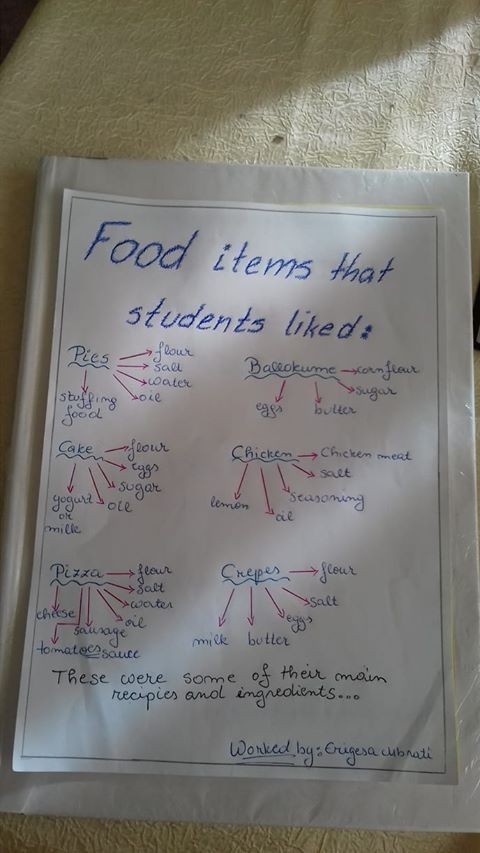 Food items that
students liked:
Pies
flour
salt
water
oil
stuffing
food
Ballokume
cornflour
sugar
butter
eggs
Cake
flour
eggs
sugar
oil
yogurt
or
milk
Chicken
Chicken meat
salt
seasoning
oil
lemon
Pizza
flour
salt
water
oil
sausage
cheese
tomatoes sauce
Crepes
flour
salt
eggs
butter
milk
These were some of their main
recipies and ingredients...
Worked by: Erigesa